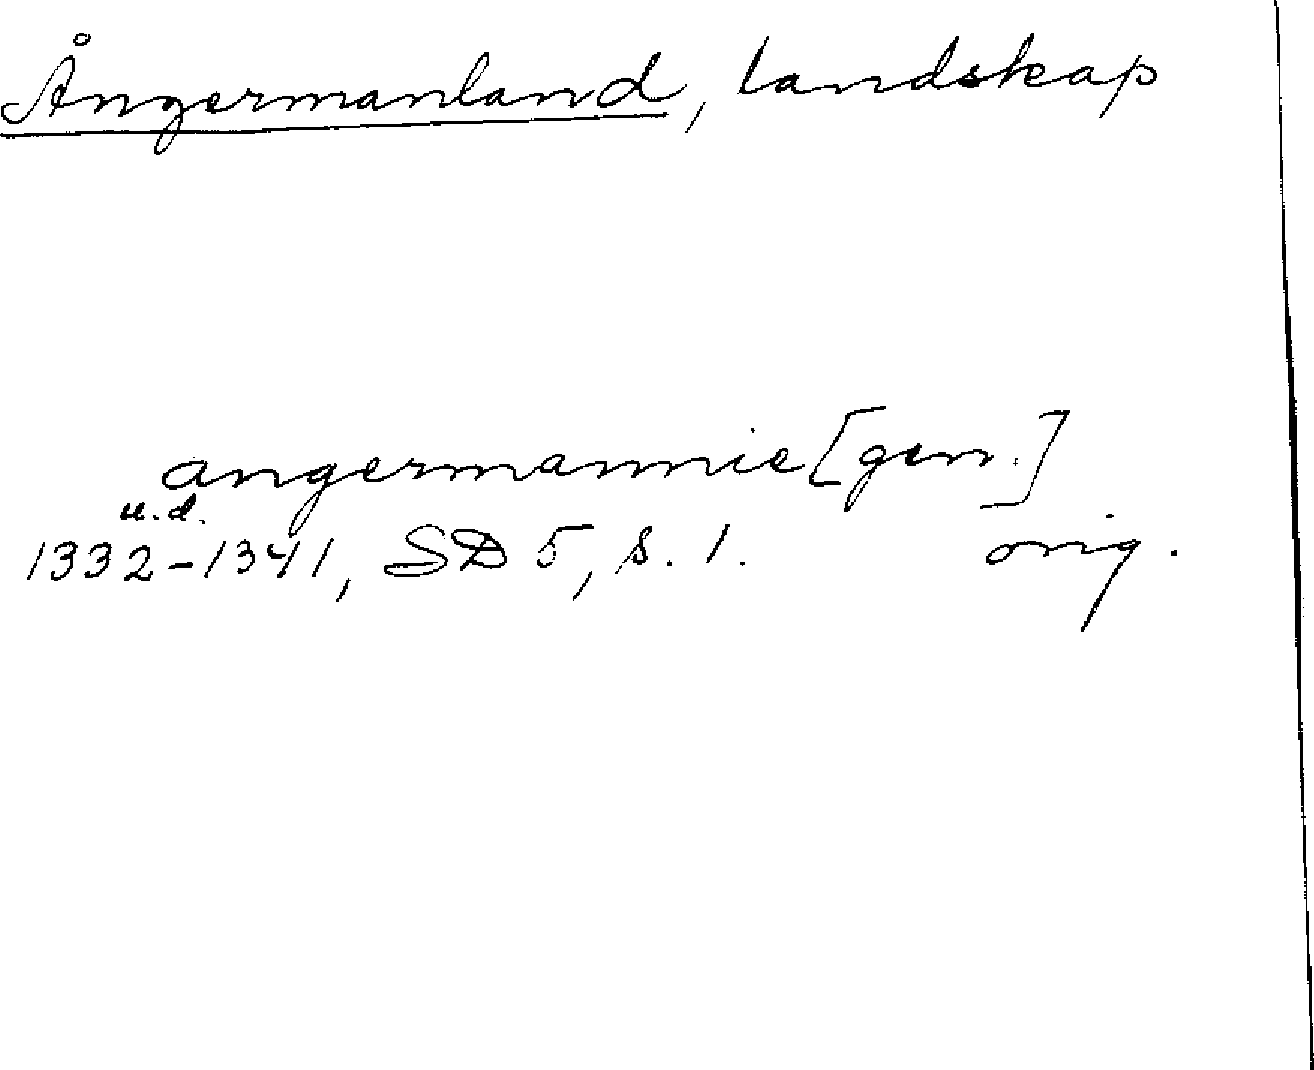 Ångermanland, landskap
angermannie [gen.]
u.d.
1332-1341, SD 5, s. 1. orig.